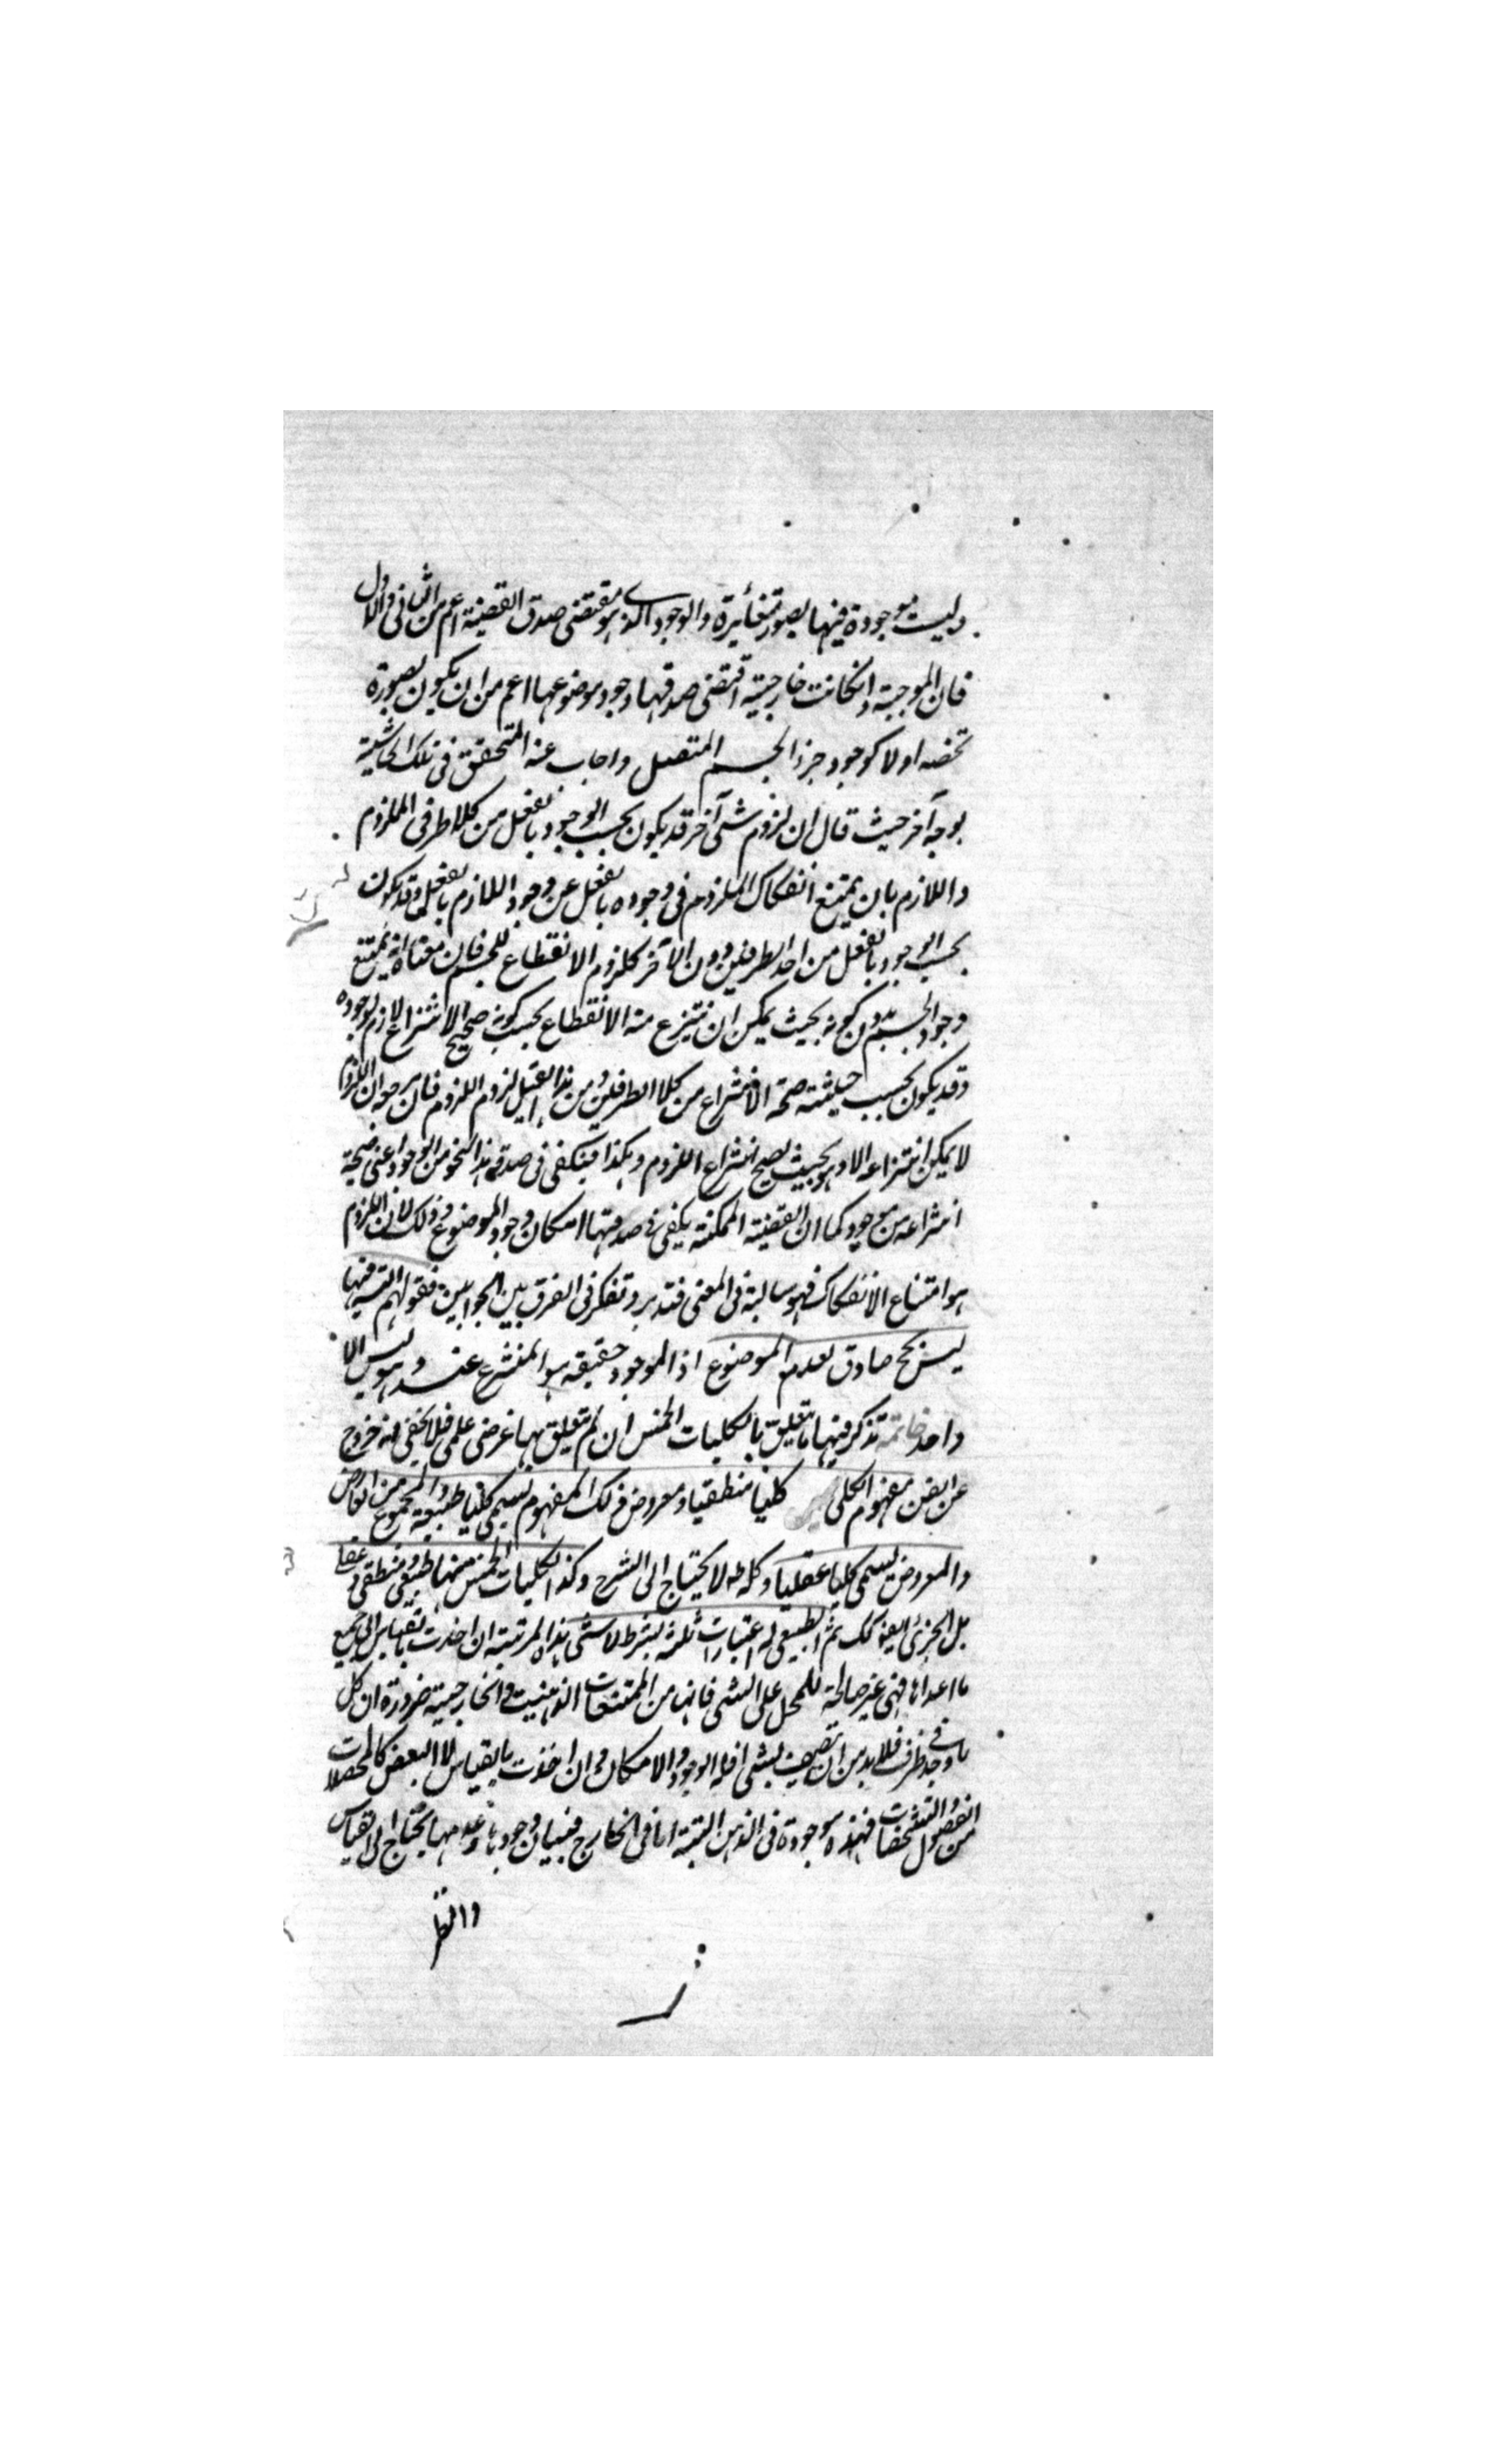 وليست موجودة فيها بصور متغائرة والوجود الذي هو مقتضى صدق القضية اعم من الثاني والاول
فان الموجبة وانكانت خارجية اقتضى صدقها وجود موضوعها اعم من ان يكون بصورة
تخصه اولا كوجود جزء الجسم المتصل واجاب عنه المحقق في تلك الحاشية
بوجه آخر حيث قال ان لزوم شئ آخر قد يكون بحسب الوجود بالفعل من كلا طرفي الملزوم
واللازم بان يمتنع انفكاك الملزوم في وجوده بالفعل عن وجود اللازم بالفعل وقد يكون
بحسب الوجود بالفعل من احد الطرفين دون الآخر كلزوم الانقطاع للجسم فان معناه انه يمتنع
وجود الجسم بدون كونه بحيث يمكن ان ينتزع منه الانقطاع بحسب كونه صحيح الانتزاع لازم لوجوده
وقد يكون بحسب حيثية صحة الانتزاع من كلا الطرفين ومن هذا القبيل لزوم اللزوم فان مرجعه ان اللزوم
لا يمكن انتزاعه الا وهو بحيث يصح انتزاع اللزوم وهكذا فيكفى في صدقه هذا النحو من الوجود اعني صحة
انتزاعه من موجود كما ان القضية الممكنة يكفي في صدقها امكان وجود الموضوع وذلك لان اللزوم
هو امتناع الانفكاك فهو سالبة في المعنى فتدبر وتفكر في الفرق بين الجوابين فقولهم التسـ فيها
ليس بح صادق لعدم الموضوع اذ الموجود حقيقة هو المنتزع عنه وهو ليس الا
واحد خاتمة تذكر فيها ما يتعلق بالكليات الخمس ان لم يتعلق بها غرض علمي فلا يخفى انه خروج
عن الفن مفهوم الكلي كليا منطقيا ومعروض ذلك المفهوم يسمى كليا طبيعة والمجموع من العارض
والمعروض يسمى كليا عقليا وكله لا يحتاج الى الشرح وكذا الكليات الخمس منها طبيعي ومنطقي وعقلي
بل الجزئي ايضا كك ثم الطبيعي له اعتبارات ثلثة بشرط لا شئ هذه المرتبة ان اخذت بالقياس الى جميع
ما اعداها فهي غير صالحة للحمل على الشئ فانها من الممتنعات الذهنية والخارجية ضرورة ان كل
ما وجد في ظرف فلا بد من ان يتصف بشئ اقله الوجود والامكان وان اخذت بالقياس الى البعض كالمحصلات
من الفصول والتشخصات فهذه موجودة في الذهن البتة اما في الخارج فبيان وجودها وعدمها يحتاج الى القياس
والنظر